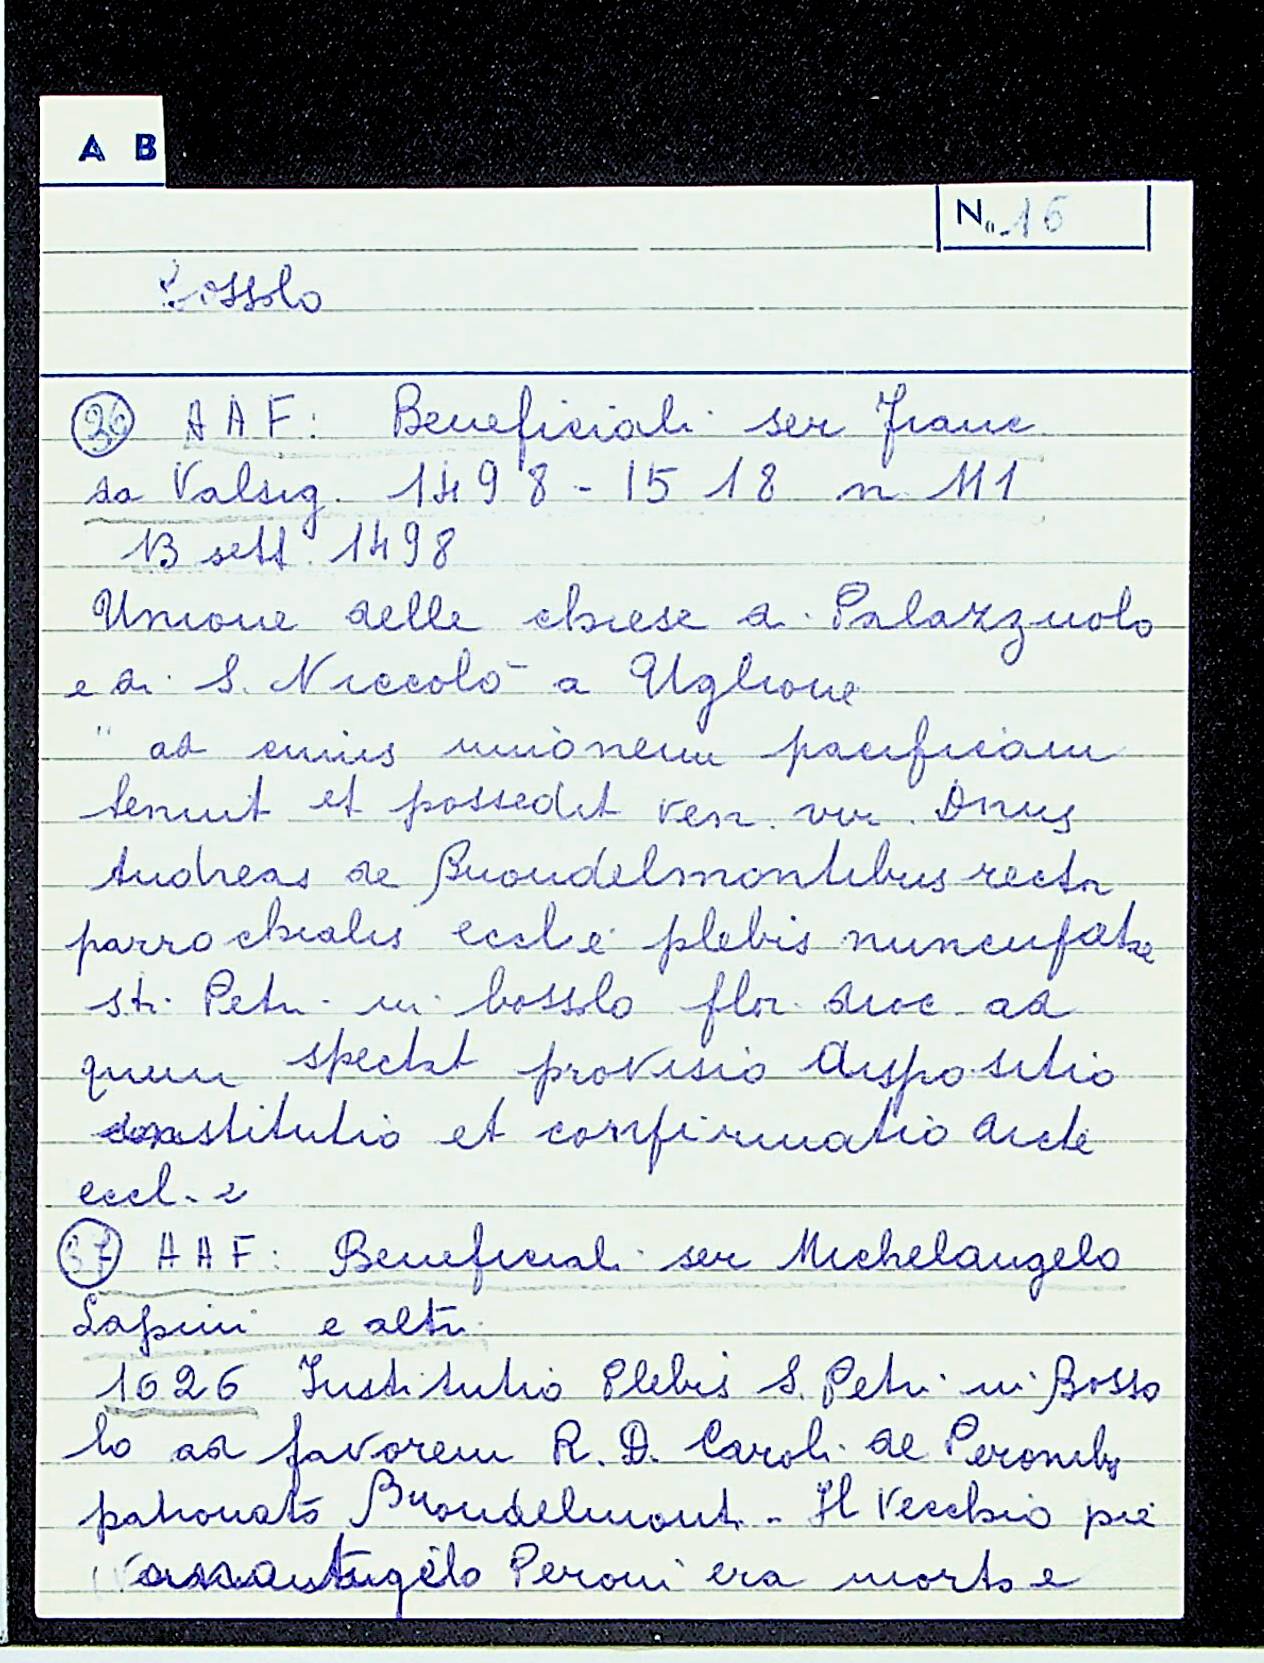 A B
No 16
Bossolo
36 AAF: Beneficiali ser Franc
da Valsig. 1498-1518 n. 111
13 sett. 1498
Unione delle chiese di Palazzuolo
e di S. Niccolò a Uglione
" ad cuius unionem pacificam
tenuit et possedit ven. vir. Dnus
Andreas de Buondelmontibus rector
parrochialis eccl.e plebis nuncupate
sti Petri in bossolo flor. dioc ad
quem spectat provisio dispositio
institutio et confirmatio dicte
eccl.e
37 AAF: Beneficiali ser Michelangelo
Lapini e altri
1626 Institutio Plebis S. Petri in Bosso
lo ad favorem R.D. Caroli de Peronibus
patronato Buondelmonti - Il Vecchio pie
Peroni era morto e